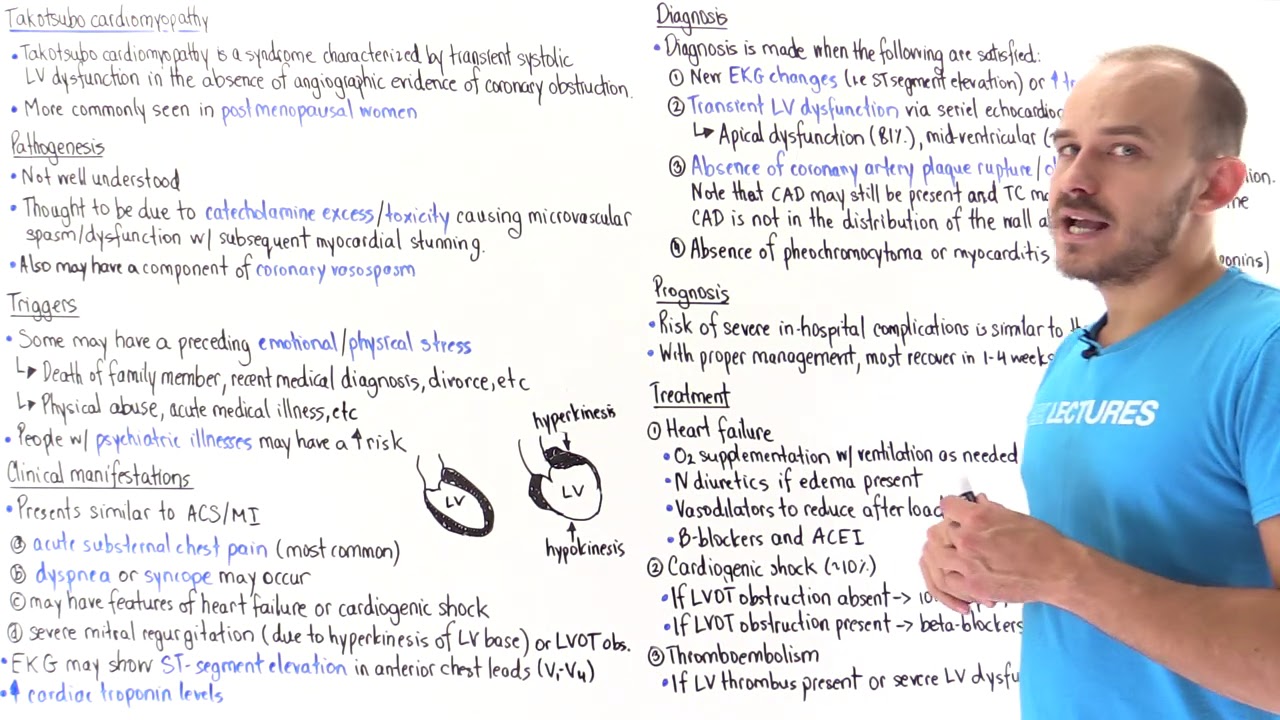 Takotsubo cardiomyopathy
• Takotsubo cardiomyopathy is a syndrome characterized by transient systolic
LV dysfunction in the absence of angiographic evidence of coronary obstruction.
• More commonly seen in postmenopausal women
Pathogenesis
• Not well understood
• Thought to be due to catecholamine excess/toxicity causing microvascular
spasm/dysfunction w/ subsequent myocardial stunning.
• Also may have a component of coronary vasospasm
Triggers
• Some may have a preceding emotional/physical stress
↳ Death of family member, recent medical diagnosis, divorce, etc
↳ Physical abuse, acute medical illness, etc
• People w/ psychiatric illnesses may have a ↑ risk
hyperkinesis
LV
LV
hypokinesis
Clinical manifestations
• Presents similar to ACS/MI
ⓐ acute substernal chest pain (most common)
ⓑ dyspnea or syncope may occur
ⓒ may have features of heart failure or cardiogenic shock
ⓓ severe mitral regurgitation (due to hyperkinesis of LV base) or LVOT obs.
• EKG may show ST-segment elevation in anterior chest leads (V1-V4)
• ↑ cardiac troponin levels
Diagnosis
• Diagnosis is made when the following are satisfied:
① New EKG changes (i.e ST segment elevation) or ↑
② Transient LV dysfunction via seriel
↳ Apical dysfunction (81%), mid-ventricular
③ Absence of coronary artery plaque rupture/
Note that CAD may still be present and TC
CAD is not in the distribution of the wall
④ Absence of pheochromocytoma or myocarditis
Prognosis
• Risk of severe in-hospital complications is similar to
• With proper management, most recover in 1-4 weeks
Treatment
① Heart failure
• O2 supplementation w/ ventilation as needed
• IV diuretics if edema present
• Vasodilators to reduce afterload
• B-blockers and ACEI
② Cardiogenic shock (~10%)
• If LVOT obstruction absent ->
• If LVOT obstruction present -> beta-blockers
③ Thromboembolism
• If LV thrombus present or severe LV
LECTURES